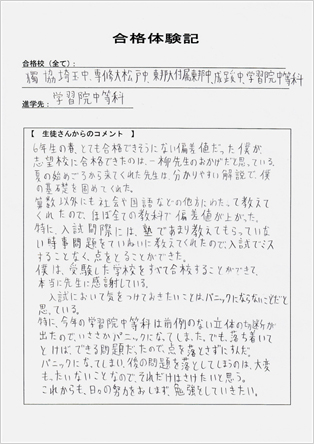 合格体験記
合格校(全て):
獨協埼玉中、専修大松戸中、東邦大付属東邦中、成蹊中、学習院中等科
学習院中等科
進学先:
【 生徒さんからのコメント 】
6年生の春、とても合格できそうにない偏差値だった僕が
志望校に合格できたのは、一柳先生のおかげだと思っている。
夏の始めごろから来てくれた先生は、分かりやすい解説で、僕
の基礎を固めてくれた。
算数以外にも社会や国語などの他方にわたって教えて
くれたので、ほぼ全ての教科で偏差値が上がった。
特に、入試間際には、塾であまり教えてもらっていな
い時事問題をていねいに教えてくれたので、入試でミス
することなく、点をとることができた。
僕は、受験した学校をすべて合格することができて、
本当に先生に感謝している。
入試において気をつけておきたいことは、パニックにならないことだと
思っている。
特に、今年の学習院中等科は前例のない立体の切断が
出たので、いささかパニックになってしまった。でも、落ち着いて
とけば、できる問題だったので、点を落とさずにすんだ。
パニックになってしまい、後の問題を落としてしまうのは、大変
もったいないことなので、それだけはさけたいと思う。
これからも、日々の努力をおしまず、勉強をしていきたい。